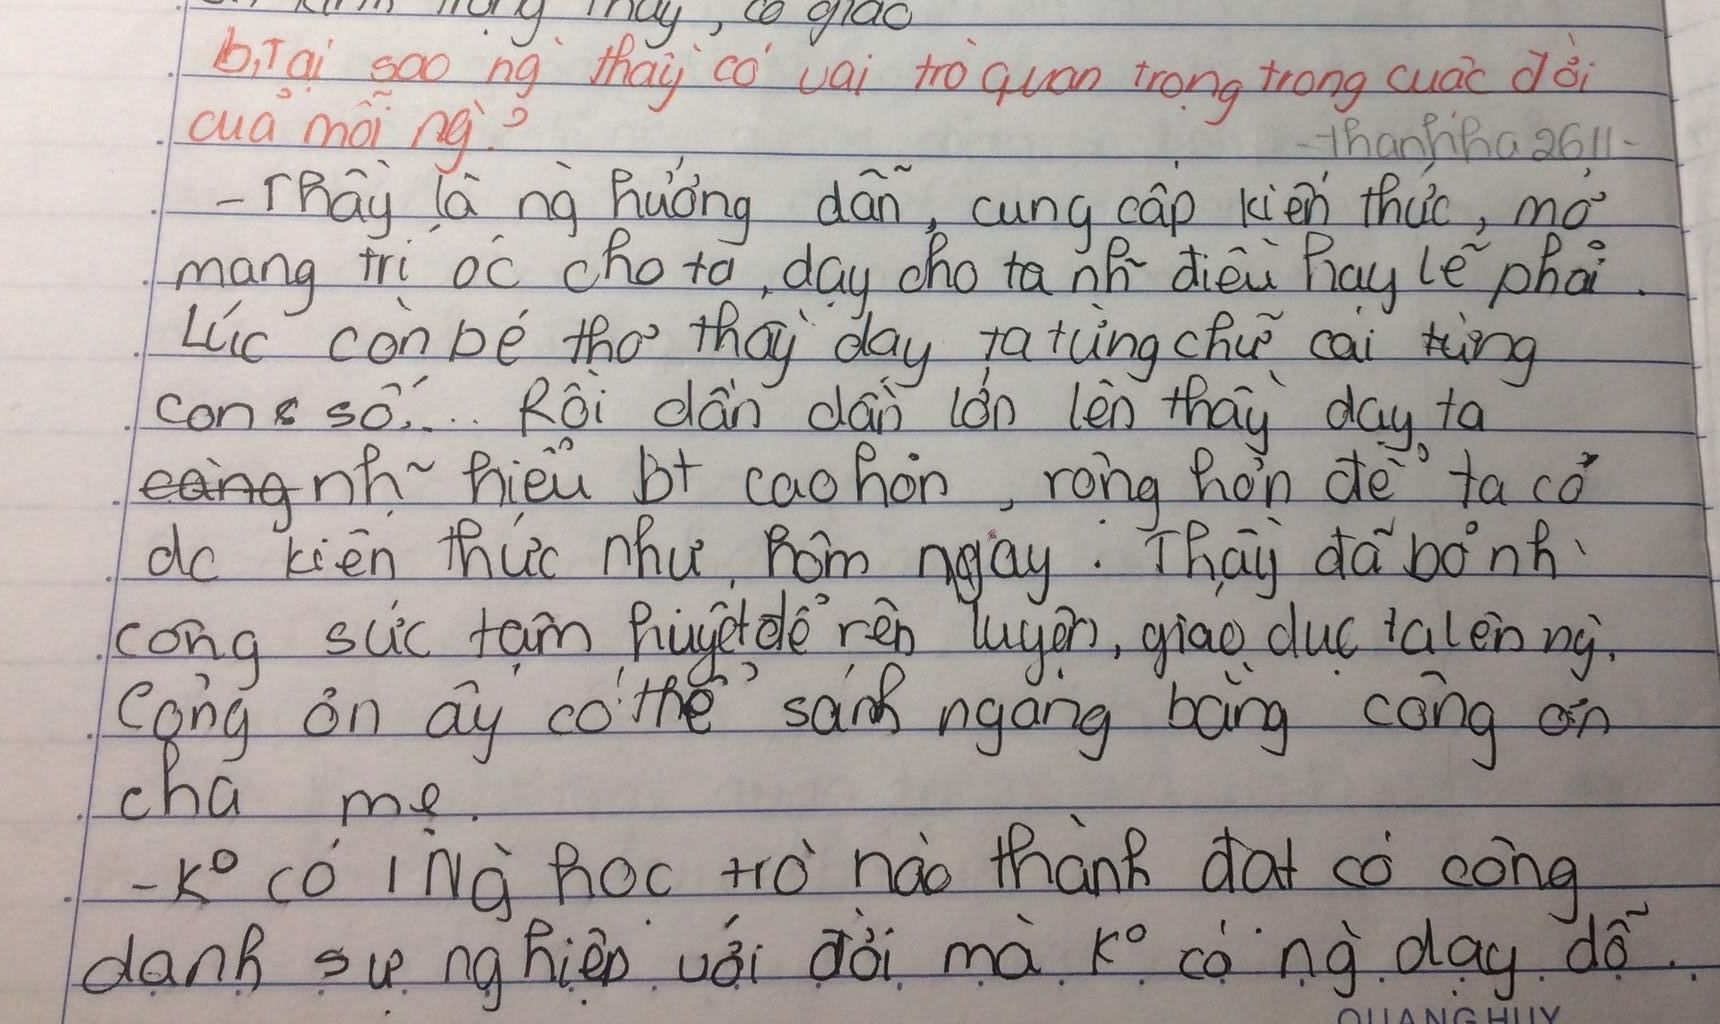 kính trọng thầy, cô giáo
b, Tại sao ng` thầy có vai trò quan trọng trong cuộc đời
của mỗi ng`?
-thanhha2611-
- Thầy là ng` hướng dẫn, cung cấp kiến thức, mở
mang trí óc cho ta, dạy cho ta nh~ điều hay lẽ phải.
Lúc còn bé thơ thầy dạy ta từng chữ cái từng
con số.... Rồi dần dần lớn lên thầy dạy ta
càng nh~ hiểu bt cao hơn, rộng hơn để ta có
dc kiến thức như hôm ngay. Thầy đã bỏ nh`
công sức tâm huyết để rèn luyện, giáo dục ta lên ng`.
Công ơn ấy có thể sánh ngang bằng công ơn
cha mẹ.
- K° có 1 Ng` học trò nào thành đạt có công
danh sự nghiệp với đời mà k° có ng` dạy dỗ.
QUANG HUY